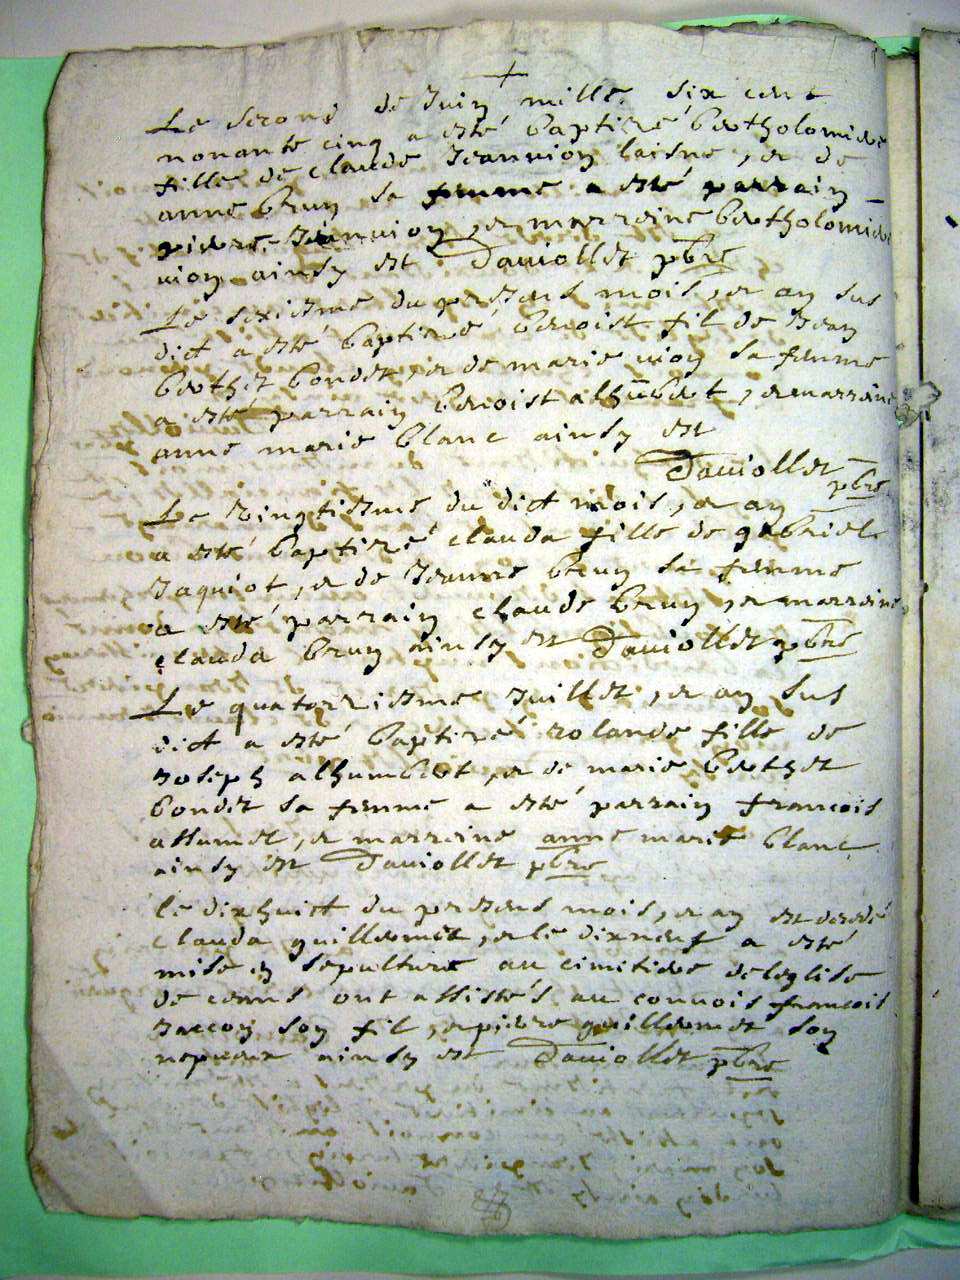 Le second de Juin mille six cent
nonante cinq a esté baptizeé bertholomiere
fille de claude Jeanvion laisné, et de
anne brun sa femme a esté parrain
pierre Jeanvion, et marreine bertholomiere
vion ainsy est Daviollet pbre
Le sixieme du present mois, et an sus
dict a esté baptizé benoist fil de Jean
berthet bondet, et de marie vion sa femme
a esté parrain benoist alhumbert, et marreine
anne marie blanc ainsy est
Daviollet pbre
Le vingtieme du dict mois, et an
a esté baptizeé clauda fille de gabriel
Jaquiot, et de Jeanne brun sa femme
a esté parrain claude brun, et marreine
clauda brun ainsy est Daviollet pbre
Le quatorzieme Juillet, et an sus
dict a esté baptizeé rolande fille de
Joseph alhumbert, et de marie berthet
bondet sa femme a esté parrain francois
et marreine anne marie blanc
ainsy est Daviollet pbre
le dixhuict du present mois, et an est decedeé
clauda guillermet, et le dixneuf a esté
mise en sepulture au cimitiere de leglise
de ceans ont assistés au convois francois
son fil, et pierre guillermet son
nepveux ainsy est Daviollet pbre